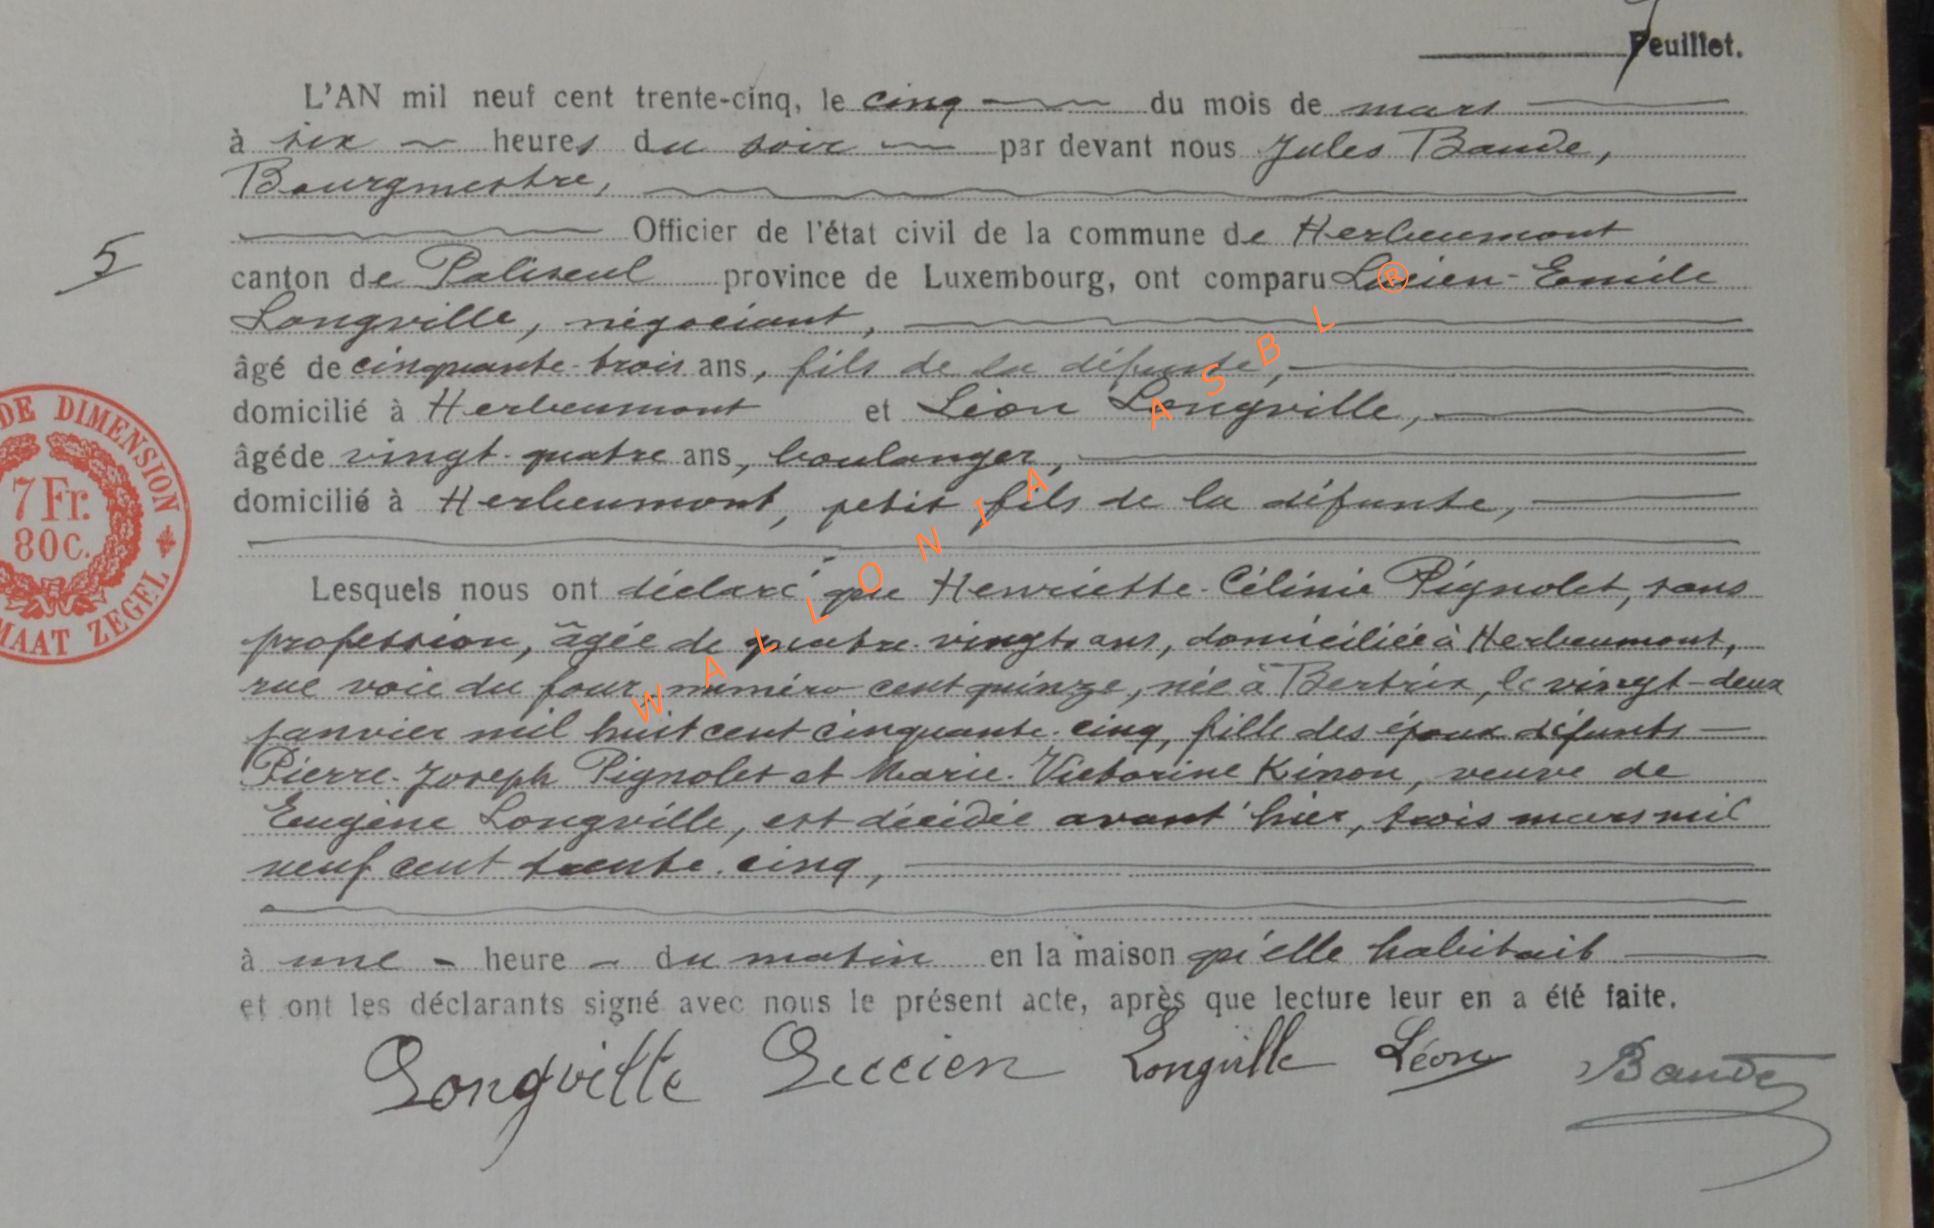 7
Feuillet.
L'AN mil neuf cent trente-cinq, le cinq du mois de mars
à six heures du soir par devant nous Jules Baude,
Bourgmestre,
Officier de l'état civil de la commune de Herbeumont
5
canton de Paliseul province de Luxembourg, ont comparu Lucien-Emile
Longville, négociant,
âgé de cinquante-trois ans, fils de la défunte,
domicilié à Herbeumont et Léon Longville,
âgé de vingt-quatre ans, boulanger,
domicilié à Herbeumont, petit fils de la défunte,
DE DIMENSION
7 Fr.
80 C.
MAAT ZEGEL
Lesquels nous ont déclaré que Henriette-Célinie Pignolet, sans
profession, âgée de quatre-vingts ans, domiciliée à Herbeumont,
rue voie du four, numéro cent quinze, née à Bertrix, le vingt-deux
janvier mil huit cent cinquante-cinq, fille des époux défunts
Pierre-Joseph Pignolet et Marie-Victorine Kinon, veuve de
Eugène Longville, est décédée avant'hier, trois mars mil
neuf cent trente-cinq,
à une heure du matin en la maison qu'elle habitait
et ont les déclarants signé avec nous le présent acte, après que lecture leur en a été faite.
Longville Lucien Longville Léon Baude
WALLONIA ASBL ®